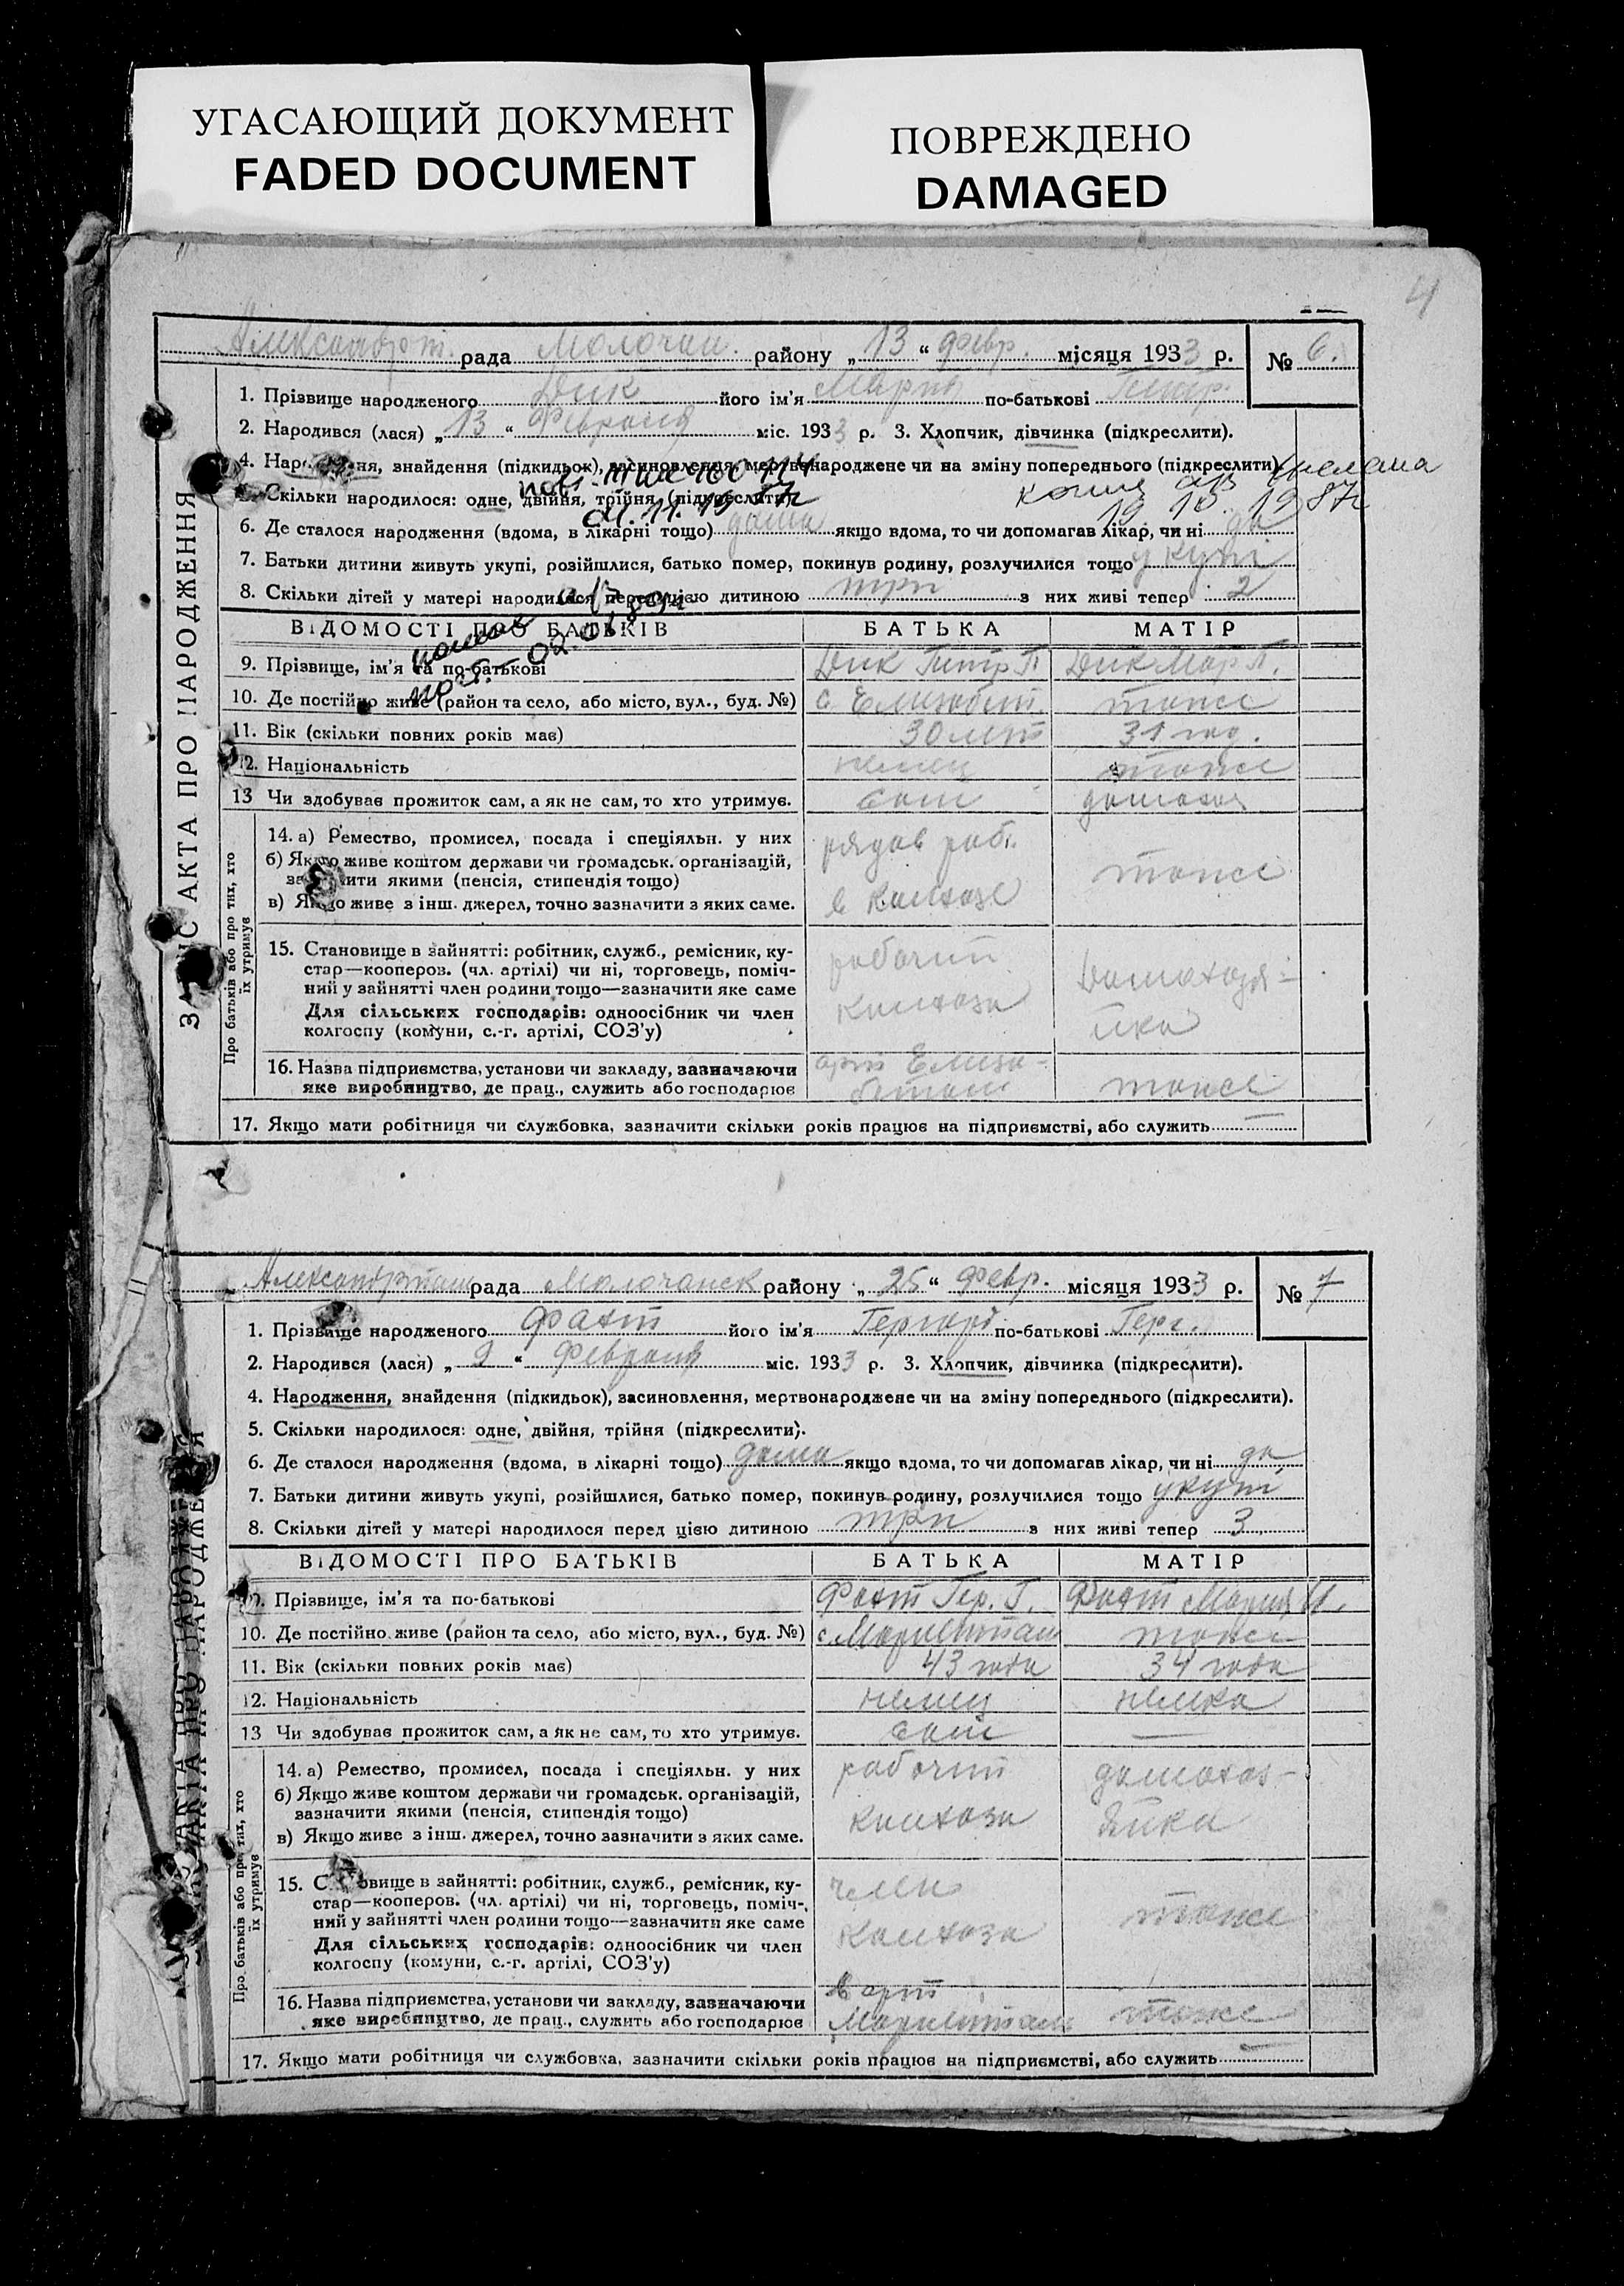 УГАСАЮЩИЙ ДОКУМЕНТ
FADED DOCUMENT
ПОВРЕЖДЕНО
DAMAGED
4
рада Молочан. району „13“ февр. місяця 1933 р. № 6.
1. Прізвище народженого Дик його ім'я Мария по-батькові Петр.
2. Народився (лася) „13“ Февраля міс. 1933 р. 3. Хлопчик, дівчинка (підкреслити).
4. знайдення (підкидьок), засиновлення, мертвонароджене чи на зміну попереднього (підкреслити).
Скільки народилося: одне, двійня, трійня (підкреслити).
19 10. 1987г
6. Де сталося народження (вдома, в лікарні тощо) дома якщо вдома, то чи допомагав лікар, чи ні да
7. Батьки дитини живуть укупі, розійшлися, батько помер, покинув родину, розлучилися тощо укупі
8. Скільки дітей у матері народилося перед цією дитиною три з них живі тепер 2
ВІДОМОСТІ ПРО БАТЬКІВ БАТЬКА МАТІР
9. Прізвище, ім'я та по-батькові Дик Петр П Дик Мар П.
10. Де постійно живе (район та село, або місто, вул., буд. №) с тоже
11. Вік (скільки повних років має) 30 лет 31 год.
12. Національність немец тоже
13 Чи здобуває прожиток сам, а як не сам, то хто утримує. сам домохоз
14. а) Ремество, промисел, посада і спеціяльн. у них рядов раб.
б) Якщо живе коштом держави чи громадськ. організацій, тоже
зазначити якими (пенсія, стипендія тощо)
в) Якщо живе з інш. джерел, точно зазначити з яких саме. в колхозе
15. Становище в зайнятті: робітник, служб., ремісник, ку- рабочий
стар—кооперов. (чл. артілі) чи ні, торговець, поміч- Домохозя-
ний у зайнятті член родини тощо—зазначити яке саме колхоза
Для сільських господарів: одноосібник чи член йка
колгоспу (комуни, с.-г. артілі, СОЗ'у)
16. Назва підприємства, установи чи закладу, зазначаючи арт Елиза-
яке виробництво, де прац., служить або господарює бетталь тоже
17. Якщо мати робітниця чи службовка, зазначити скільки років працює на підприємстві, або служить —
ЗАПИС АКТА ПРО НАРОДЖЕННЯ
Про батьків або про тих, хто
їх утримує
рада Молочанск району „25“ февр. місяця 1933 р. № 7
1. Прізвище народженого Фаст його ім'я Гергард по-батькові Герг.
2. Народився (лася) „9“ Февраля міс. 1933 р. 3. Хлопчик, дівчинка (підкреслити).
4. Народження, знайдення (підкидьок), засиновлення, мертвонароджене чи на зміну попереднього (підкреслити).
5. Скільки народилося: одне, двійня, трійня (підкреслити).
6. Де сталося народження (вдома, в лікарні тощо) дома якщо вдома, то чи допомагав лікар, чи ні да
7. Батьки дитини живуть укупі, розійшлися, батько помер, покинув родину, розлучилися тощо укупі
8. Скільки дітей у матері народилося перед цією дитиною три з них живі тепер 3
ВІДОМОСТІ ПРО БАТЬКІВ БАТЬКА МАТІР
9. Прізвище, ім'я та по-батькові Фаст Гер. Г. Фаст Мария И.
10. Де постійно живе (район та село, або місто, вул., буд. №) с. Мариенталь тоже
11. Вік (скільки повних років має) 43 года 34 года
12. Національність немец немка
13 Чи здобуває прожиток сам, а як не сам, то хто утримує. сам —
14. а) Ремество, промисел, посада і спеціяльн. у них рабочий домохоз-
б) Якщо живе коштом держави чи громадськ. організацій,
зазначити якими (пенсія, стипендія тощо) колхоза яйка
в) Якщо живе з інш. джерел, точно зазначити з яких саме.
15. Становище в зайнятті: робітник, служб., ремісник, ку- член
стар—кооперов. (чл. артілі) чи ні, торговець, поміч-
ний у зайнятті член родини тощо—зазначити яке саме колхоза тоже
Для сільських господарів: одноосібник чи член
колгоспу (комуни, с.-г. артілі, СОЗ'у)
16. Назва підприємства, установи чи закладу, зазначаючи в арт
яке виробництво, де прац., служить або господарює Мариенталь тоже
17. Якщо мати робітниця чи службовка, зазначити скільки років працює на підприємстві, або служить —
Про батьків або про тих, хто
їх утримує